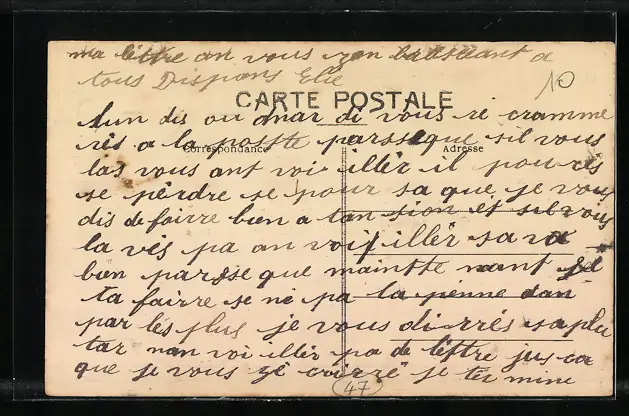 ma lettre an vous ran brassant a
tous Dispans Elie
10
CARTE POSTALE
Correspondance
Adresse
lun dis ou dnar di vous re cramme
rés a la posste parsseque sil vous
las vous ant voi illér il pou rés
se pérdre se pour sa que je vous
dis de foirre bien a tan sion et sil vous
la vés pa an voi illér sa va
bien parsse que maintte nant
ta fairre se ni pa la pienne dan
par lés plus je vous dirrés sa plu
tar nan voi illér pa de léttre jus ca
que je vous zé crirré je ter mine
47